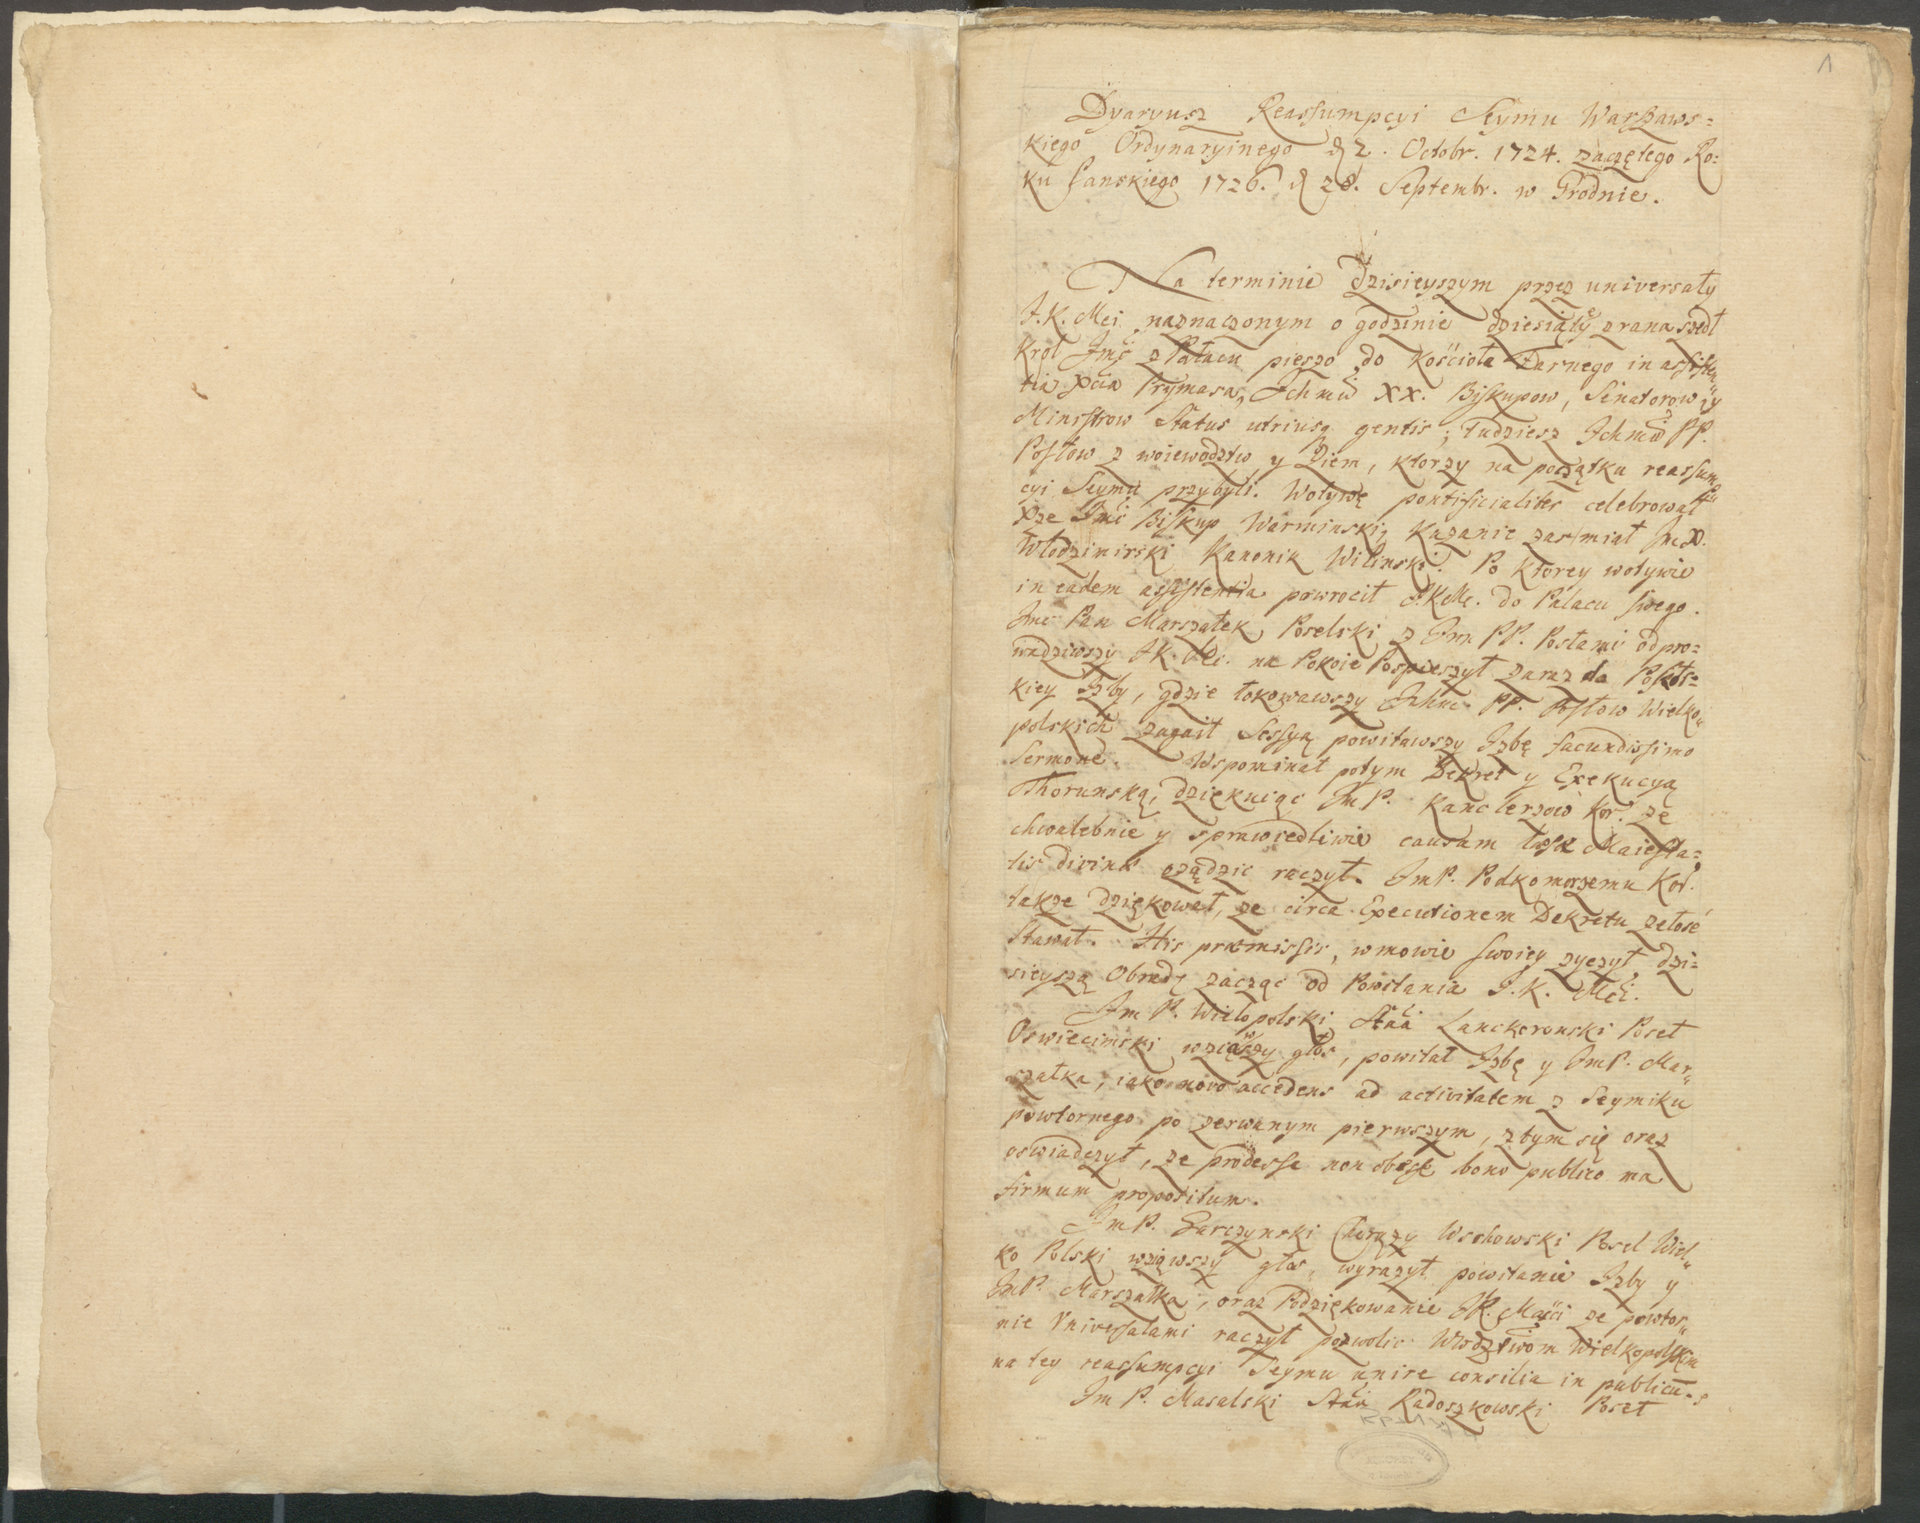 1
Dyaryusz Reassumpcyi Seymu Warszaws=
kiego Ordynaryinego d 2. Octobr. 1724. zaczętego Ro:
ku Panskiego 1726. d 28. Septembr. w Grodnie.
Na terminie dzisieyszym przez universały
J.K. Mci naznaczonym o godzinie dziesiątey zrana szedł
Krol Jmć z Pałacu pieszo do Kościoła Farnego in assisten=
tia Xcia Prymasa, Ichmciw XX. Biskupow, Senatorow y
Ministrow Status utriusq gentis; tudziesz Ichmciw PP.
Posłow z woiewodztw y Ziem, ktorzy na początku reassump
cyi Seymu przybyli. Wotywę pontificialiter celebrował
Xże Jmci Biskup Warminski, Kazanie zas miał Jm X.
Włodzimirski Kanonik Wilinski. Po ktorey wotywie
in eadem assistentia powrocił J.K.Mc. do Pałacu swego.
Jmc Pan Marszałek Poselski z Jmn PP. Posłami odpro=
wadziwszy J.K.Mci. na Pokoie Pospieszył zaraz do Posels=
kiey Izby, gdzie lokowawszy Ichmc PP. Posłow Wielko=
polskich zagaił Sessyą powitawszy Izbę facundissimo
Sermone. Wspominał potym Dekret y Exekucyą
Thorunską, dziękuiąc JmP. Kanclerzowi Kor. że
chwalebnie y sprawiedliwie causam læsæ Maiesta=
tis divinæ osądzic raczył. JmP. Podkomorzemu Kor.
także dziękował, że circa Executionem Dekretu zelose
stawał. His præmissis, w mowie swoiey zyczył dzi=
sieyszą Obradę zacząc od Powitania J.K. Mci.
Jm P. Wielopolski Stta Lanckoronski Poseł
Oswiecimski wziąwszy głos, powitał Izbę y JmP. Mar=
szałka, iako novo accedens ad activitatem z Seymiku
powtornego po zerwanym pierwszym, z tym się oraz
oswiadczył, że prodesse non obesse bono publico ma
firmum propositum.
Jm P. Garczynski Chorąży Wschowski Poseł Wiel=
ko Polski wziąwszy głos, wyraził powitanie Izby y
JmP. Marszałka, oraz Podziękowanie JK. Mości że powtor=
nie Universałami raczył pozwolic Wwdztwom Wielkopolskim
na tey reassumpcyi Seymu unire consilia in publicū.
Jm P. Masalski Stta Radoszkowski Poseł